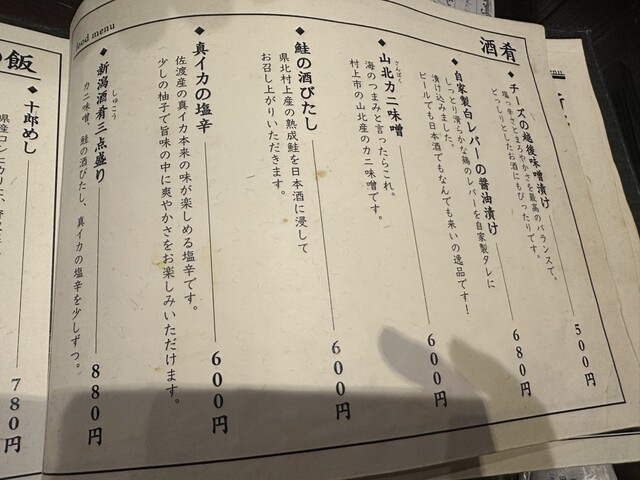 food menu
酒肴
◆チーズの越後味噌漬け 500円
塩っ辛さとまろやかさを最高のバランスで。
どっしりとしたお酒にもぴったりです。
◆自家製白レバーの醤油漬け 680円
しっとり滑らかな鶏のレバーを自家製タレに
漬け込みました。
ビールでも日本酒でもなんでも来いの逸品です！
◆山北カニ味噌 600円
さんぽく
海のつまみと言ったらこれ。
村上市の山北産のカニ味噌です。
◆鮭の酒びたし 600円
県北村上産の熟成鮭を日本酒に浸して
お召し上がりいただきます。
◆真イカの塩辛 600円
佐渡産の真イカ本来の味が楽しめる塩辛です。
少しの柚子で旨味の中に爽やかさをお楽しみいただけます。
◆新潟酒肴三点盛り 880円
しゅこう
カニ味噌、鮭の酒びたし、真イカの塩辛を少しずつ。
の飯
◆十郎めし 780円